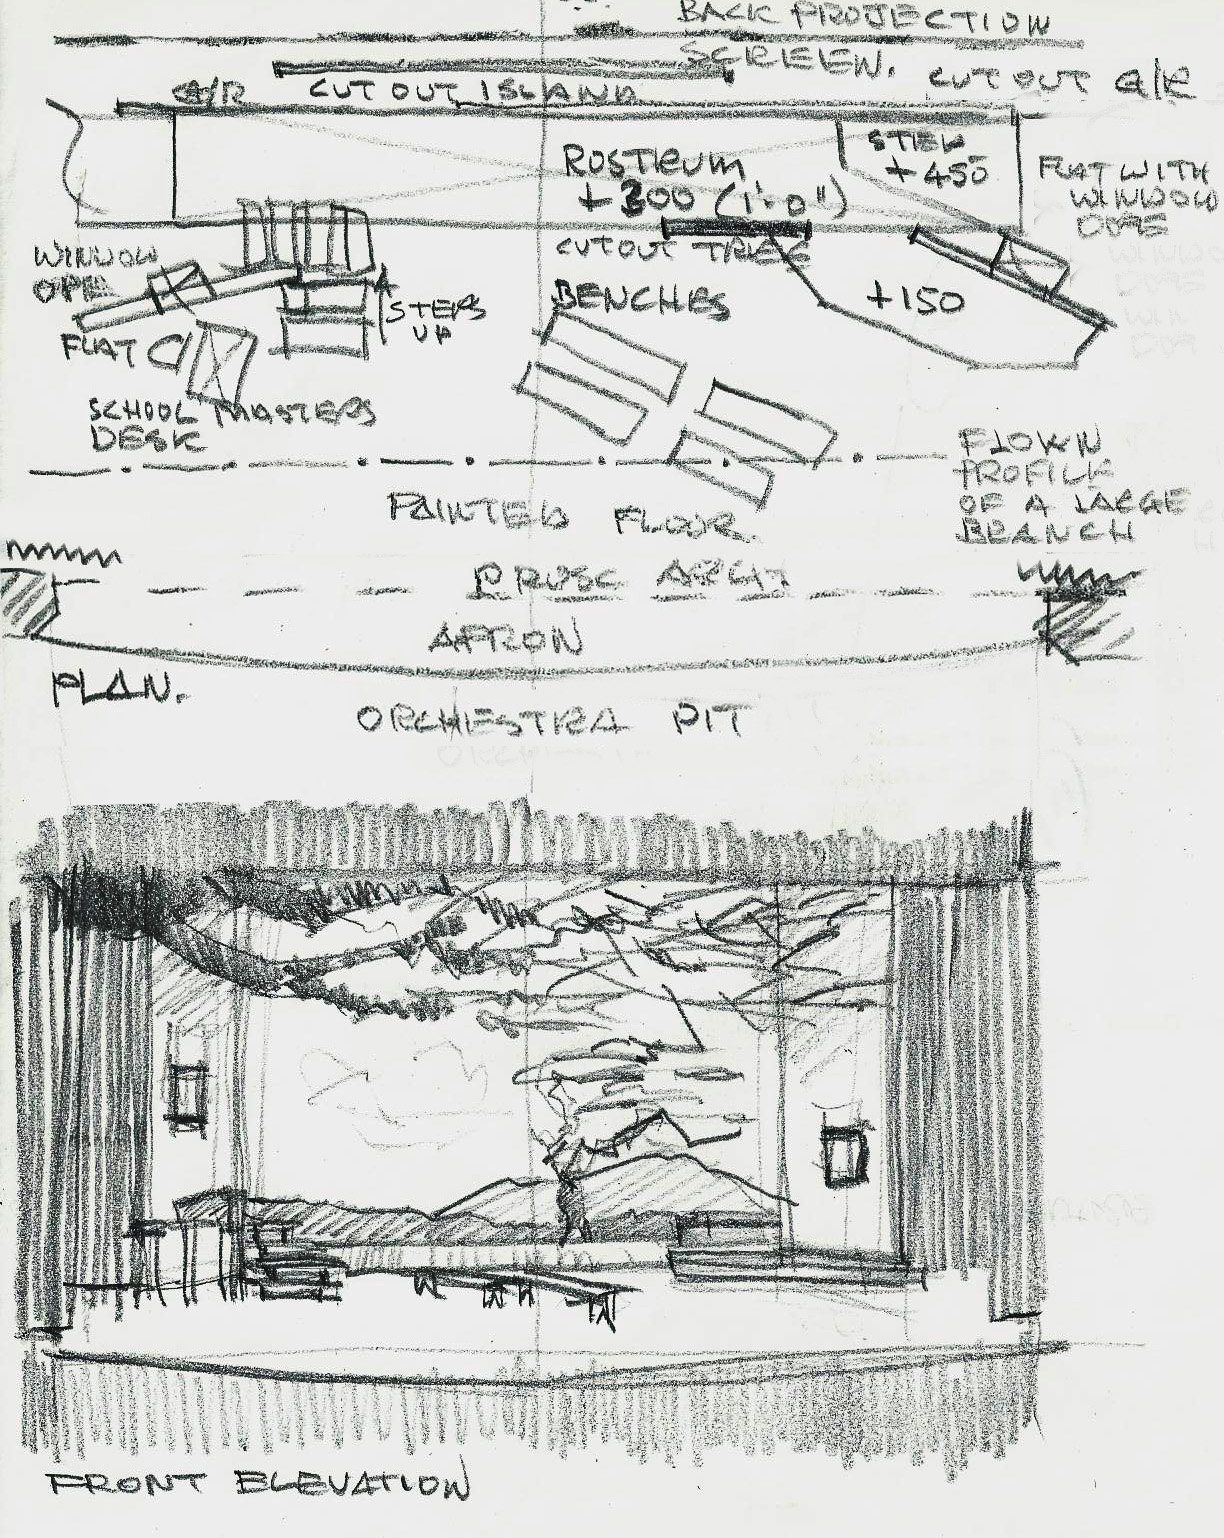 BACK PROJECTION
SCREEN.
CUT OUT G/R
G/R
CUT OUT ISLAND
STEP
+450
ROSTRUM
+300 (1'-0")
FLAT WITH
WINDOW
OPE
CUTOUT TREE
WINDOW
OPE
BENCHES
+150
STEPS
UP
FLAT
SCHOOL MASTERS
DESK
FLOWN
PROFILE
OF A LARGE
BRANCH
PAINTED FLOOR.
PROSC ARCH
APRON
PLAN.
ORCHESTRA PIT
FRONT ELEVATION